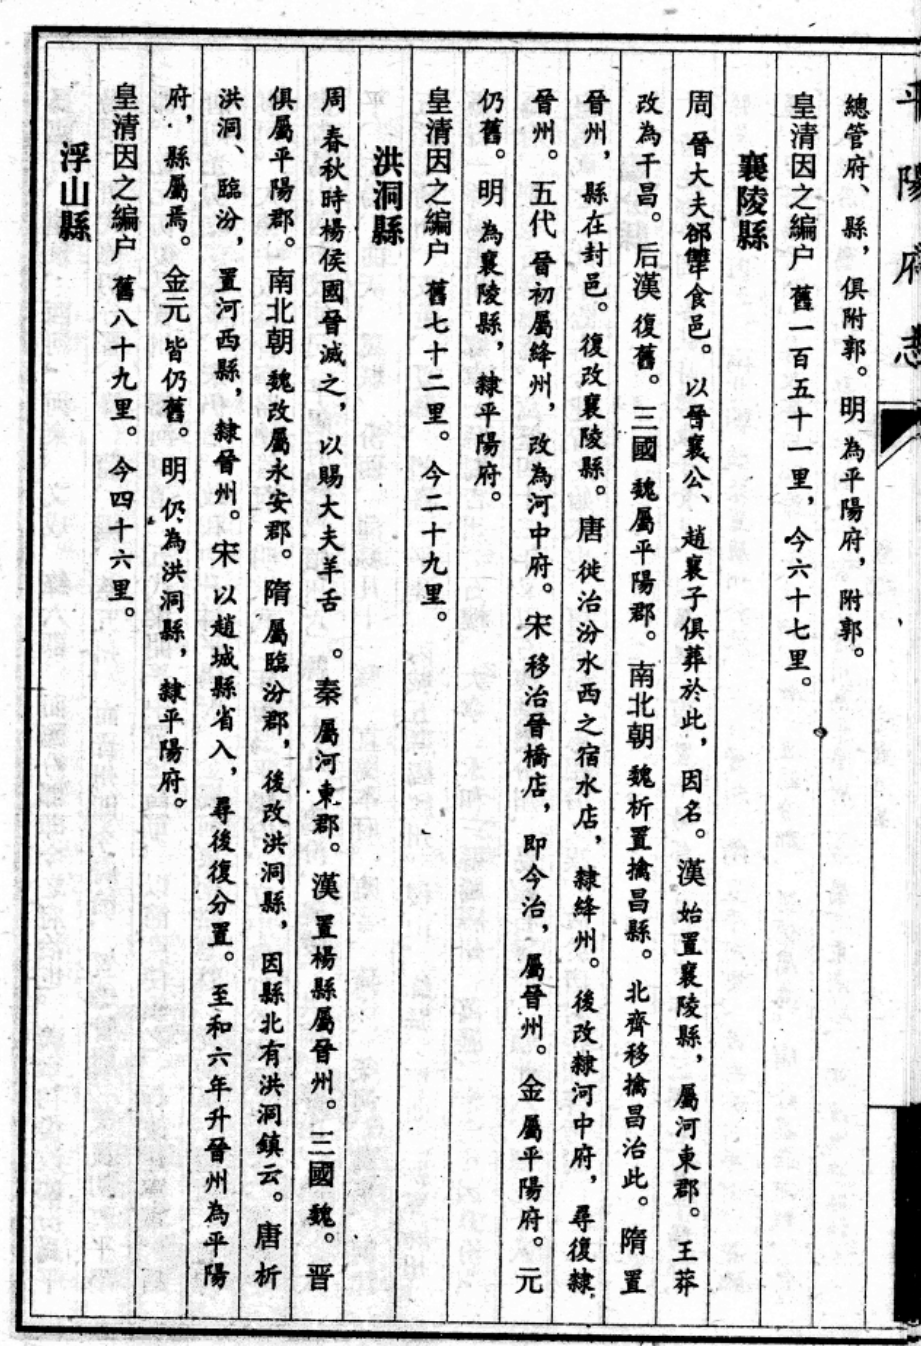 平陽府志
總管府、縣，俱附郭。明 為平陽府，附郭。
皇清因之編户 舊一百五十一里，今六十七里。
襄陵縣
周 晉大夫郤犨食邑。以晉襄公、趙襄子俱葬於此，因名。漢 始置襄陵縣，屬河東郡。王莽
改為干昌。后漢 復舊。三國 魏屬平陽郡。南北朝 魏析置擒昌縣。北齊移擒昌治此。隋 置
晉州，縣在封邑。復改襄陵縣。唐 徙治汾水西之宿水店，隸絳州。後改隸河中府，尋復隸
晉州。五代 晉初屬絳州，改為河中府。宋 移治晉橋店，即今治，屬晉州。金 屬平陽府。元
仍舊。明 為襄陵縣，隸平陽府。
皇清因之編户 舊七十二里。今二十九里。
洪洞縣
周 春秋時楊侯國晉滅之，以賜大夫羊舌 。秦 屬河東郡。漢 置楊縣屬晉州。三國 魏。晋
俱屬平陽郡。南北朝 魏改屬永安郡。隋 屬臨汾郡，後改洪洞縣，因縣北有洪洞鎮云。唐 析
洪洞、臨汾，置河西縣，隸晉州。宋 以趙城縣省入，尋後復分置。至和六年升晉州為平陽
府，縣屬焉。金元 皆仍舊。明 仍為洪洞縣，隸平陽府。
皇清因之編户 舊八十九里。今四十六里。
浮山縣